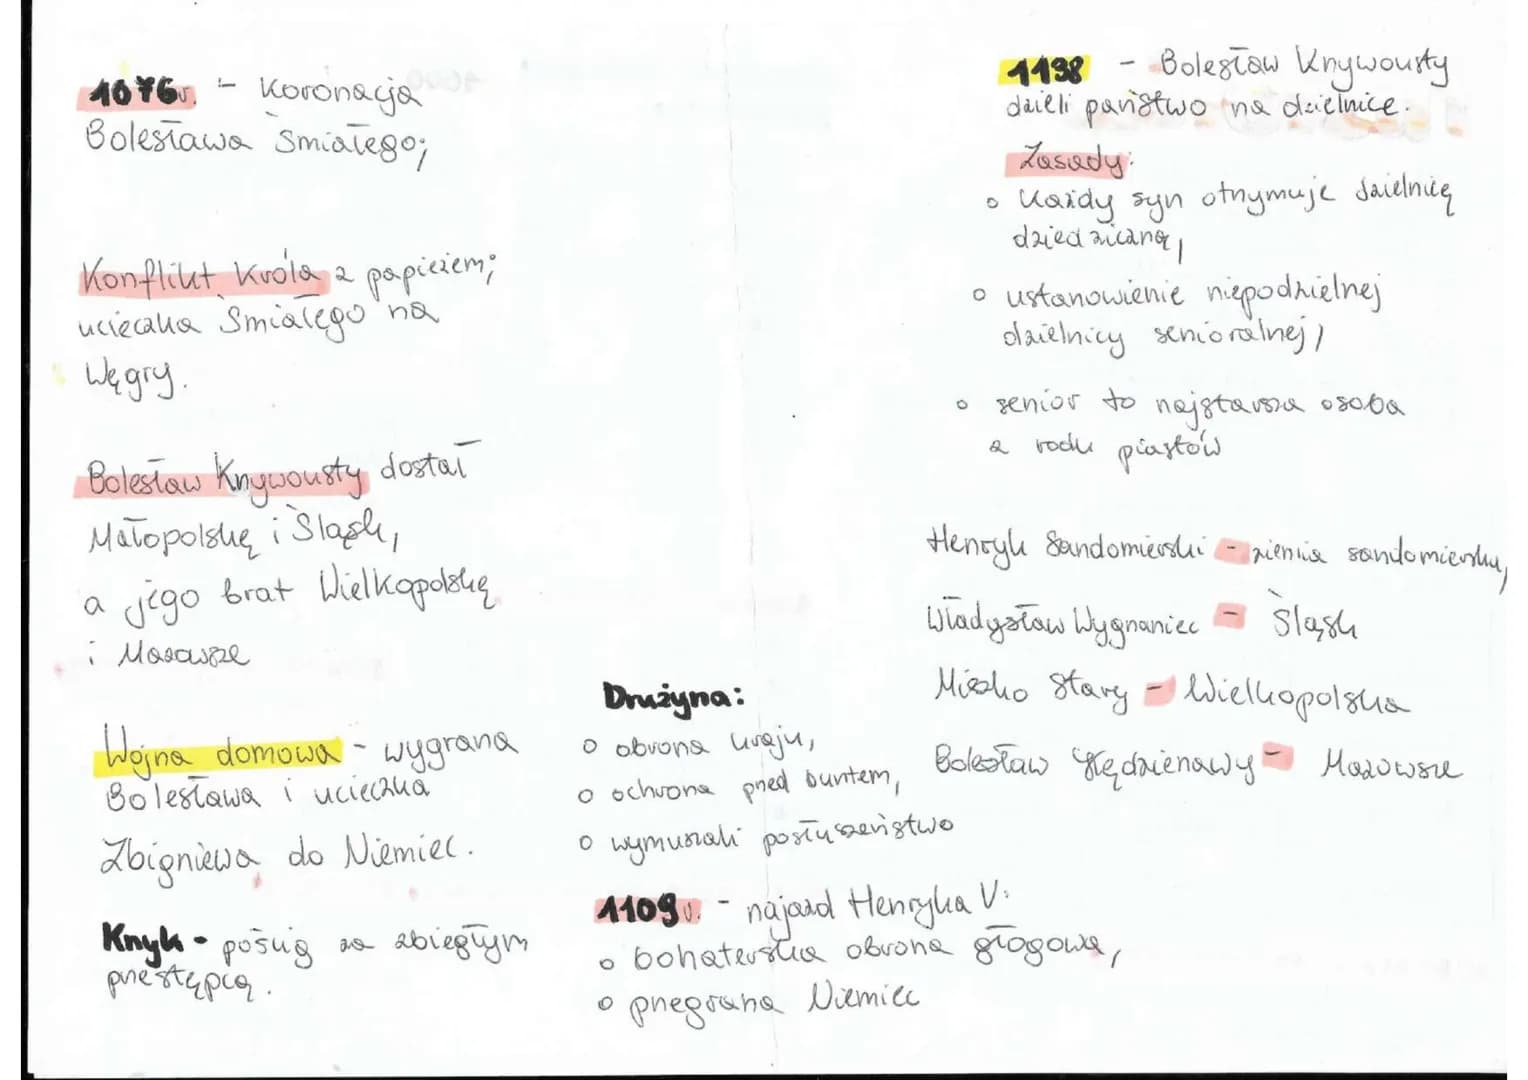 1076r. - Koronacja
Bolesława Śmiałego;
Konflikt króla z papieżem;
ucieczka Śmiałego na
Węgry.
Bolesław Krzywousty dostał
Małopolskę i Śląsk,
a jego brat Wielkopolskę
i Mazowsze
Wojna domowa - wygrana
Bolesława i ucieczka
Zbigniewa do Niemiec.
Krzyk - pościg za zbiegłym
przestępcą.
Drużyna:
o obrona kraju,
o ochrona przed buntem,
o wymuszali posłuszeństwo
1109r. - najazd Henryka V:
o bohaterska obrona głogowa,
o przegrana Niemiec
1138 - Bolesław Krzywousty
dzieli państwo na dzielnice.
Zasady:
o Każdy syn otrzymuje dzielnicę
dziedziczną,
o ustanowienie niepodzielnej
dzielnicy senioralnej,
o senior to najstarsza osoba
z rodu piastów
Henryk Sandomierski - ziemia sandomierska,
Władysław Wygnaniec - Śląsk
Mieszko Stary - Wielkopolska
Bolesław Kędzierzawy - Mazowsze